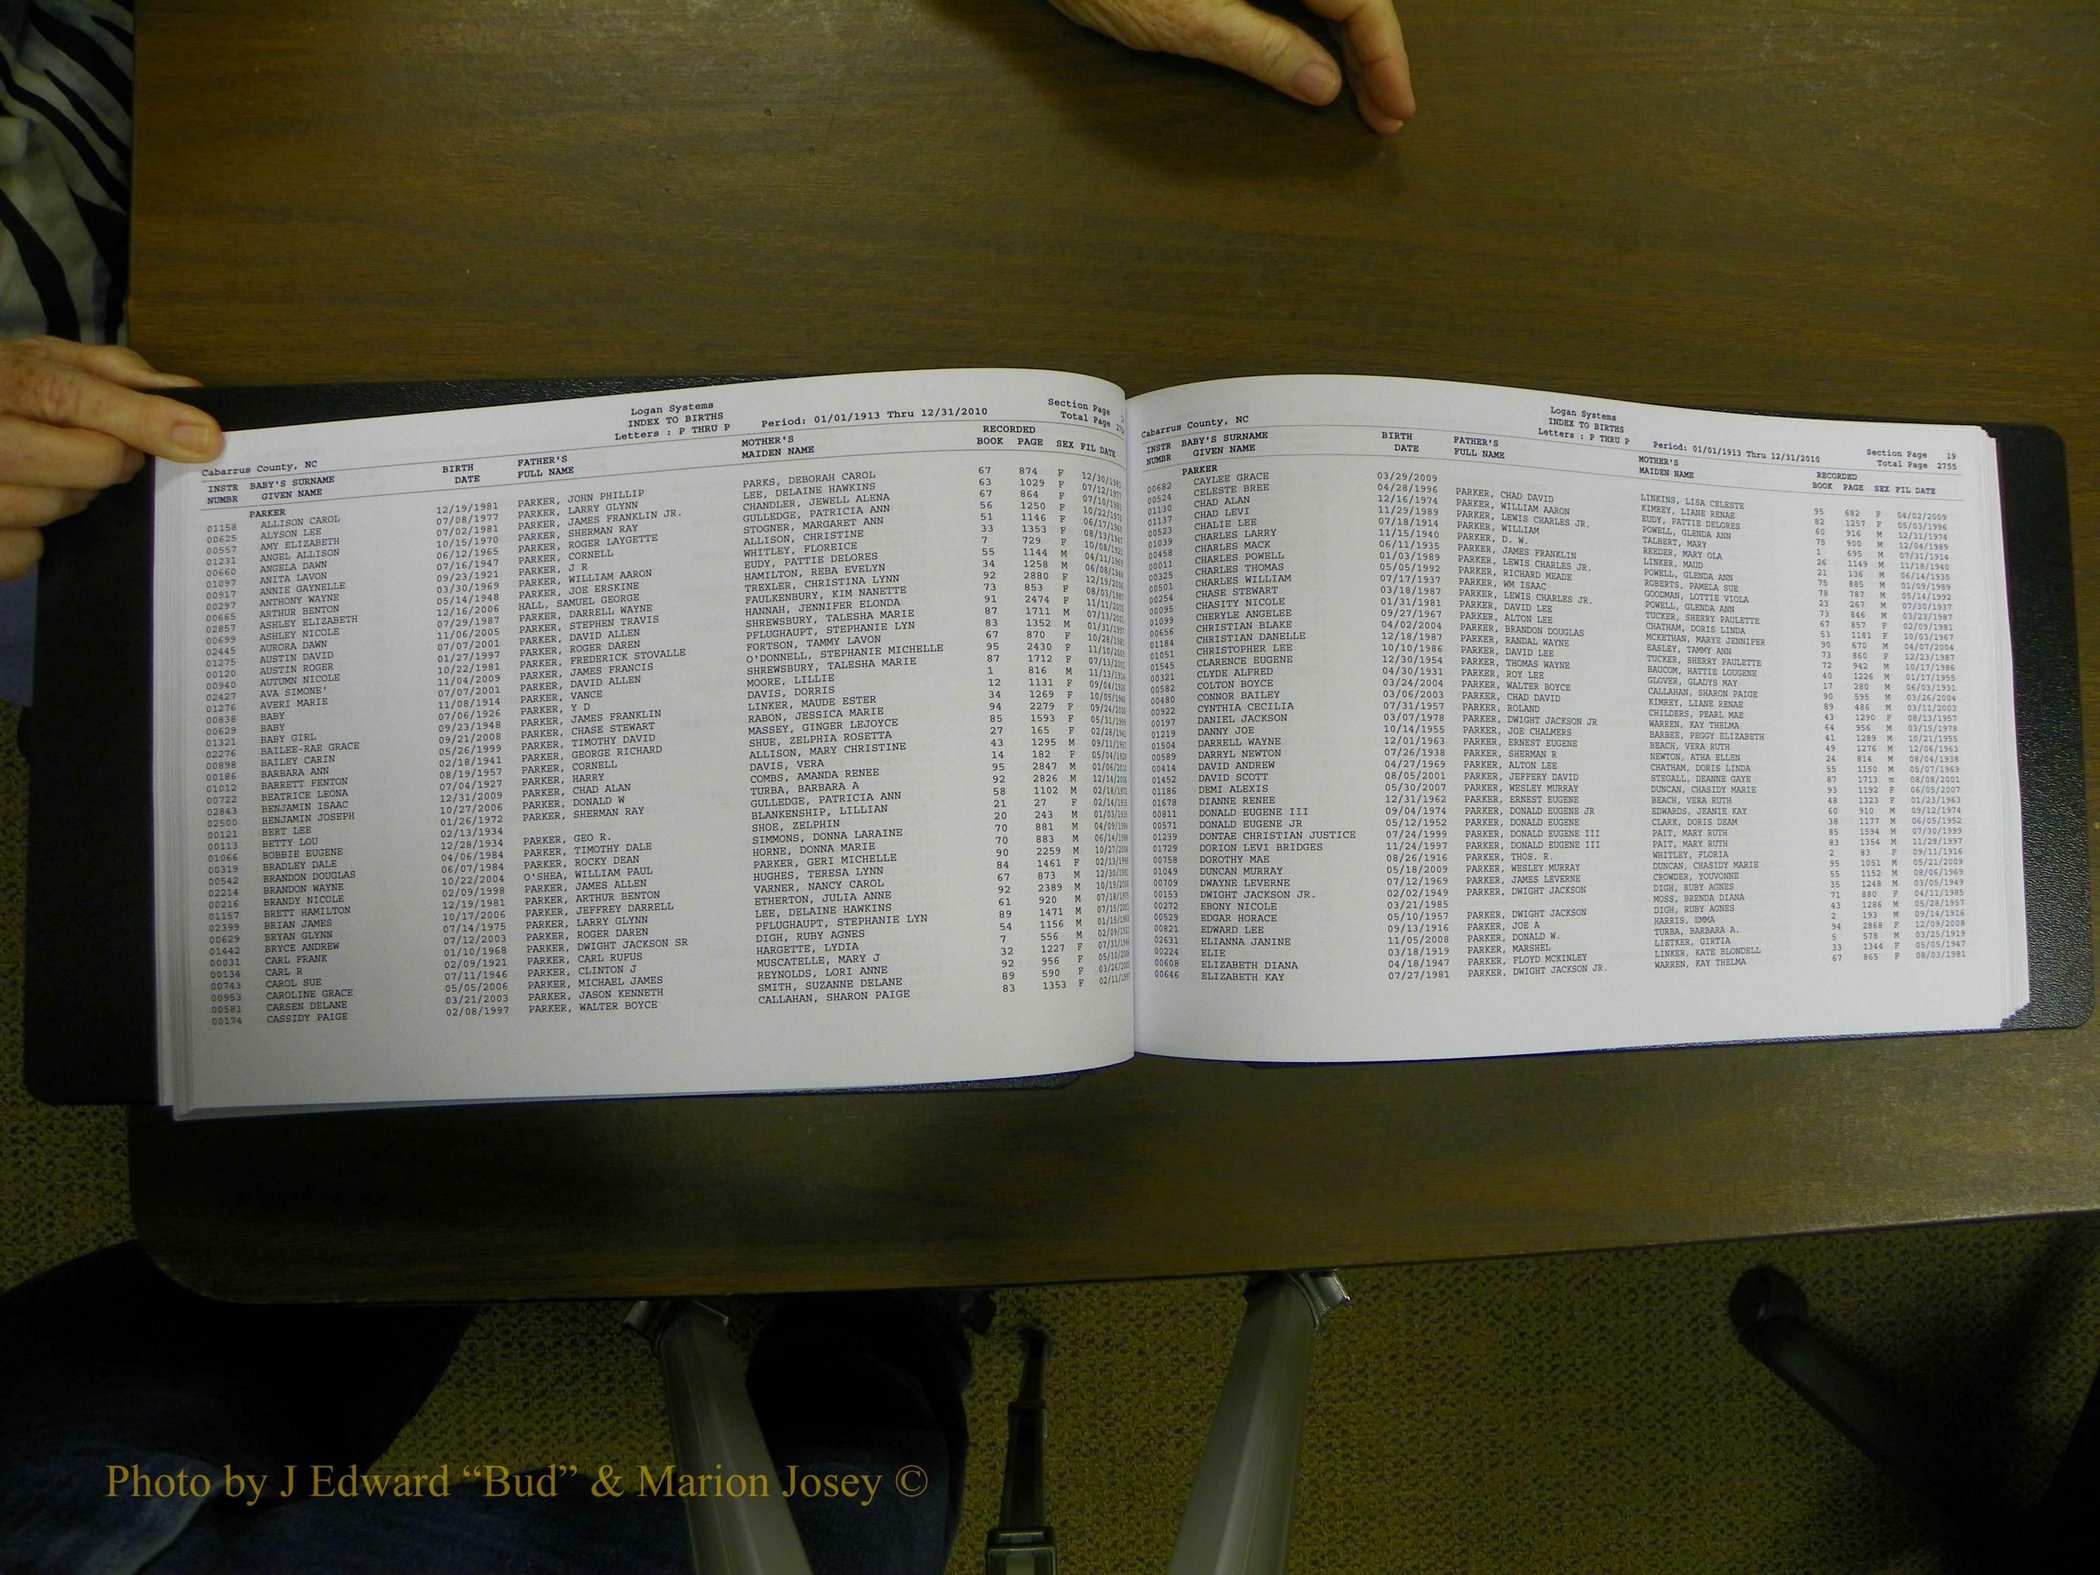 Logan Systems
INDEX TO BIRTHS
Letters : P THRU P Period: 01/01/1913 Thru 12/31/2010
Section Page
Total Page
Cabarrus County, NC
INSTR NUMBR BABY'S SURNAME GIVEN NAME BIRTH DATE FATHER'S FULL NAME MOTHER'S MAIDEN NAME RECORDED BOOK PAGE SEX FIL DATE
PARKER
01158 ALLISON CAROL 12/19/1981 PARKER, JOHN PHILLIP PARKS, DEBORAH CAROL 67 874 F 12/30/1981
00625 ALYSON LEE 07/08/1977 PARKER, LARRY GLYNN LEE, DELAINE HAWKINS 63 1029 F 07/12/1977
00557 AMY ELIZABETH 07/02/1981 PARKER, JAMES FRANKLIN JR. CHANDLER, JEWELL ALENA 67 864 F 07/10/1981
01231 ANGEL ALLISON 10/15/1970 PARKER, SHERMAN RAY GULLEDGE, PATRICIA ANN 56 1250 F 10/22/1970
00660 ANGELA DAWN 06/12/1965 PARKER, ROGER LAYGETTE STOGNER, MARGARET ANN 51 1146 F 06/17/1965
01097 ANITA LAVON 07/16/1947 PARKER, CORNELL ALLISON, CHRISTINE 33 1353 F 08/13/1947
00917 ANNIE GAYNELLE 09/23/1921 PARKER, J R WHITLEY, FLOREICE 7 729 F 10/08/1921
00297 ANTHONY WAYNE 03/30/1969 PARKER, WILLIAM AARON EUDY, PATTIE DELORES 55 1144 M 04/11/1969
00665 ARTHUR BENTON 05/14/1948 PARKER, JOE ERSKINE HAMILTON, REBA EVELYN 34 1258 M 06/08/1948
02857 ASHLEY ELIZABETH 12/16/2006 HALL, SAMUEL GEORGE TREXLER, CHRISTINA LYNN 92 2880 F 12/19/2006
00699 ASHLEY NICOLE 07/29/1987 PARKER, DARRELL WAYNE FAULKENBURY, KIM NANETTE 73 853 F 08/03/1987
02445 AURORA DAWN 11/06/2005 PARKER, STEPHEN TRAVIS HANNAH, JENNIFER ELONDA 91 2474 F 11/11/2005
01275 AUSTIN DAVID 07/07/2001 PARKER, DAVID ALLEN SHREWSBURY, TALESHA MARIE 87 1711 M 07/13/2001
00120 AUSTIN ROGER 01/27/1997 PARKER, ROGER DAREN PFLUGHAUPT, STEPHANIE LYN 83 1352 M 01/31/1997
00940 AUTUMN NICOLE 10/22/1981 PARKER, FREDERICK STOVALLE FORTSON, TAMMY LAVON 67 870 F 10/28/1981
02427 AVA SIMONE' 11/04/2009 PARKER, JAMES FRANCIS O'DONNELL, STEPHANIE MICHELLE 95 2430 F 11/10/2009
01276 AVERI MARIE 07/07/2001 PARKER, DAVID ALLEN SHREWSBURY, TALESHA MARIE 87 1712 F 07/13/2001
00838 BABY 11/08/1914 PARKER, VANCE MOORE, LILLIE 1 816 M 11/13/1914
00629 BABY 07/06/1926 PARKER, Y D DAVIS, DORRIS 12 1131 F 09/04/1926
01321 BABY GIRL 09/23/1948 PARKER, JAMES FRANKLIN LINKER, MAUDE ESTER 34 1269 F 10/05/1948
02276 BAILEE-RAE GRACE 09/21/2008 PARKER, CHASE STEWART RABON, JESSICA MARIE 94 2279 F 09/24/2008
00898 BAILEY CARIN 05/26/1999 PARKER, TIMOTHY DAVID MASSEY, GINGER LEJOYCE 85 1593 F 05/31/1999
00186 BARBARA ANN 02/18/1941 PARKER, GEORGE RICHARD SHUE, ZELPHIA ROSETTA 27 165 F 02/28/1941
01012 BARRETT FENTON 08/19/1957 PARKER, CORNELL ALLISON, MARY CHRISTINE 43 1295 M 09/11/1957
00722 BEATRICE LEONA 07/04/1927 PARKER, HARRY DAVIS, VERA 14 182 F 05/04/1928
02843 BENJAMIN ISAAC 12/31/2009 PARKER, CHAD ALAN COMBS, AMANDA RENEE 95 2847 M 01/06/2010
02500 BENJAMIN JOSEPH 10/27/2006 PARKER, DONALD W TURBA, BARBARA A 92 2826 M 12/14/2006
00121 BERT LEE 01/26/1972 PARKER, SHERMAN RAY GULLEDGE, PATRICIA ANN 58 1102 M 02/18/1972
00113 BETTY LOU 02/13/1934 BLANKENSHIP, LILLIAN 21 27 F 02/14/1935
01066 BOBBIE EUGENE 12/28/1934 PARKER, GEO R. SHOE, ZELPHIN 20 243 M 01/03/1935
00319 BRADLEY DALE 04/06/1984 PARKER, TIMOTHY DALE SIMMONS, DONNA LARAINE 70 881 M 04/09/1984
00542 BRANDON DOUGLAS 06/07/1984 PARKER, ROCKY DEAN HORNE, DONNA MARIE 70 883 M 06/14/1984
02214 BRANDON WAYNE 10/22/2004 O'SHEA, WILLIAM PAUL PARKER, GERI MICHELLE 90 2259 M 10/27/2004
00216 BRANDY NICOLE 02/09/1998 PARKER, JAMES ALLEN HUGHES, TERESA LYNN 84 1461 F 02/13/1998
01157 BRETT HAMILTON 12/19/1981 PARKER, ARTHUR BENTON VARNER, NANCY CAROL 67 873 M 12/30/1981
02399 BRIAN JAMES 10/17/2006 PARKER, JEFFREY DARRELL ETHERTON, JULIA ANNE 92 2389 M 10/19/2006
00629 BRYAN GLYNN 07/14/1975 PARKER, LARRY GLYNN LEE, DELAINE HAWKINS 61 920 M 07/18/1975
01442 BRYCE ANDREW 07/12/2003 PARKER, ROGER DAREN PFLUGHAUPT, STEPHANIE LYN 89 1471 M 07/15/2003
00031 CARL FRANK 01/10/1968 PARKER, DWIGHT JACKSON SR DIGH, RUBY AGNES 54 1156 M 01/15/1968
00134 CARL R 02/09/1921 PARKER, CARL RUFUS HARGETTE, LYDIA 7 556 M
00743 CAROL SUE 07/11/1946 PARKER, CLINTON J MUSCATELLE, MARY J 32 1227 F 07/31/1946
00953 CAROLINE GRACE 05/05/2006 PARKER, MICHAEL JAMES REYNOLDS, LORI ANNE 92 956 F 05/10/2006
00581 CARSEN DELANE 03/21/2003 PARKER, JASON KENNETH SMITH, SUZANNE DELANE 89 590 F 03/26/2003
00174 CASSIDY PAIGE 02/08/1997 PARKER, WALTER BOYCE CALLAHAN, SHARON PAIGE 83 1353 F 02/11/1997
Logan Systems
INDEX TO BIRTHS
Letters : P THRU P Period: 01/01/1913 Thru 12/31/2010
Section Page 19
Total Page 2755
Cabarrus County, NC
INSTR NUMBR BABY'S SURNAME GIVEN NAME BIRTH DATE FATHER'S FULL NAME MOTHER'S MAIDEN NAME RECORDED BOOK PAGE SEX FIL DATE
PARKER
00682 CAYLEE GRACE 03/29/2009 LINKINS, LISA CELESTE 95 682 F 04/02/2009
00524 CELESTE BREE 04/28/1996 PARKER, CHAD DAVID KIMREY, LIANE RENAE 82 1257 F 05/03/1996
01130 CHAD ALAN 12/16/1974 PARKER, WILLIAM AARON EUDY, PATTIE DELORES 60 916 M 12/31/1974
01137 CHAD LEVI 11/29/1989 PARKER, LEWIS CHARLES JR. POWELL, GLENDA ANN 75 900 M 12/04/1989
00523 CHALIE LEE 07/18/1914 PARKER, WILLIAM TALBERT, MARY 1 695 M 07/31/1914
01039 CHARLES LARRY 11/15/1940 PARKER, D. W. REEDER, MARY OLA 26 1149 M 11/18/1940
00458 CHARLES MACK 06/11/1935 PARKER, JAMES FRANKLIN LINKER, MAUD 21 136 M 06/14/1935
00011 CHARLES POWELL 01/03/1989 PARKER, LEWIS CHARLES JR. POWELL, GLENDA ANN 75 885 M 01/09/1989
00325 CHARLES THOMAS 05/05/1992 PARKER, RICHARD MEADE ROBERTS, PAMELA SUE 78 787 M 05/14/1992
00501 CHARLES WILLIAM 07/17/1937 PARKER, WM ISAAC GOODMAN, LOTTIE VIOLA 23 267 M 07/30/1937
00254 CHASE STEWART 03/18/1987 PARKER, LEWIS CHARLES JR. POWELL, GLENDA ANN 73 846 M 03/23/1987
00095 CHASITY NICOLE 01/31/1981 PARKER, DAVID LEE TUCKER, SHERRY PAULETTE 67 857 F 02/09/1981
01099 CHERYLE ANGELEE 09/27/1967 PARKER, ALTON LEE CHATHAM, DORIS LINDA 53 1181 F 10/03/1967
00656 CHRISTIAN BLAKE 04/02/2004 PARKER, BRANDON DOUGLAS MCKETHAN, MARYE JENNIFER 90 670 M 04/07/2004
01184 CHRISTIAN DANELLE 12/18/1987 PARKER, RANDAL WAYNE EASLEY, TAMMY ANN 73 860 F 12/23/1987
01051 CHRISTOPHER LEE 10/10/1986 PARKER, DAVID LEE TUCKER, SHERRY PAULETTE 72 942 M 10/17/1986
01545 CLARENCE EUGENE 12/30/1954 PARKER, THOMAS WAYNE BAUCOM, HATTIE LOUGENE 40 1226 M 01/17/1955
00321 CLYDE ALFRED 04/30/1931 PARKER, ROY LEE GLOVER, GLADYS MAY 17 280 M 06/03/1931
00582 COLTON BOYCE 03/24/2004 PARKER, WALTER BOYCE CALLAHAN, SHARON PAIGE 90 595 M 03/26/2004
00480 CONNOR BAILEY 03/06/2003 PARKER, CHAD DAVID KIMREY, LIANE RENAE 89 486 M 03/11/2003
00922 CYNTHIA CECILIA 07/31/1957 PARKER, ROLAND CHILDERS, PEARL MAE 43 1290 F 08/13/1957
00197 DANIEL JACKSON 03/07/1978 PARKER, DWIGHT JACKSON JR WARREN, KAY THELMA 64 956 M 03/15/1978
01219 DANNY JOE 10/14/1955 PARKER, JOE CHALMERS BARBEE, PEGGY ELIZABETH 41 1289 M 10/21/1955
01504 DARRELL WAYNE 12/01/1963 PARKER, ERNEST EUGENE BEACH, VERA RUTH 49 1276 M 12/06/1963
00589 DARRYL NEWTON 07/26/1938 PARKER, SHERMAN R NEWTON, ATHA ELLEN 24 814 M 08/04/1938
00414 DAVID ANDREW 04/27/1969 PARKER, ALTON LEE CHATHAM, DORIS LINDA 55 1150 M 05/07/1969
01452 DAVID SCOTT 08/05/2001 PARKER, JEFFERY DAVID STEGALL, DEANNE GAYE 87 1713 m 08/08/2001
01186 DEMI ALEXIS 05/30/2007 PARKER, WESLEY MURRAY DUNCAN, CHASIDY MARIE 93 1192 F 06/05/2007
01678 DIANNE RENEE 12/31/1962 PARKER, ERNEST EUGENE BEACH, VERA RUTH 48 1323 F 01/23/1963
00811 DONALD EUGENE III 09/04/1974 PARKER, DONALD EUGENE JR EDWARDS, JEANIE KAY 60 910 M 09/12/1974
00571 DONALD EUGENE JR 05/12/1952 PARKER, DONALD EUGENE CLARK, DORIS DEAM 38 1177 M 06/05/1952
01239 DONTAE CHRISTIAN JUSTICE 07/24/1999 PARKER, DONALD EUGENE III PAIT, MARY RUTH 85 1594 M 07/30/1999
01729 DORION LEVI BRIDGES 11/24/1997 PARKER, DONALD EUGENE III PAIT, MARY RUTH 83 1354 M 11/28/1997
00758 DOROTHY MAE 08/26/1916 PARKER, THOS. R. WHITLEY, FLORIA 2 83 F 09/11/1916
01049 DUNCAN MURRAY 05/18/2009 PARKER, WESLEY MURRAY DUNCAN, CHASIDY MARIE 95 1051 M 05/21/2009
00709 DWAYNE LEVERNE 07/12/1969 PARKER, JAMES LEVERNE CROWDER, YOUVONNE 55 1152 M 08/06/1969
00153 DWIGHT JACKSON JR. 02/02/1949 PARKER, DWIGHT JACKSON DIGH, RUBY AGNES 35 1248 M 03/05/1949
00272 EBONY NICOLE 03/21/1985 MOSS, BRENDA DIANA 71 880 F 04/11/1985
00529 EDGAR HORACE 05/10/1957 PARKER, DWIGHT JACKSON DIGH, RUBY AGNES 43 1286 M 05/28/1957
00821 EDWARD LEE 09/13/1916 PARKER, JOE A HARRIS, EMMA 2 193 M 09/14/1916
02631 ELIANNA JANINE 11/05/2008 PARKER, DONALD W. TURBA, BARBARA A. 94 2868 F 12/09/2008
00224 ELIE 03/18/1919 PARKER, MARSHEL LIETKER, GIRTIA 5 578 M 03/25/1919
00608 ELIZABETH DIANA 04/18/1947 PARKER, FLOYD MCKINLEY LINKER, KATE BLONDELL 33 1344 F 05/05/1947
00646 ELIZABETH KAY 07/27/1981 PARKER, DWIGHT JACKSON JR. WARREN, KAY THELMA 67 865 F 08/03/1981
Photo by J Edward “Bud” & Marion Josey ©